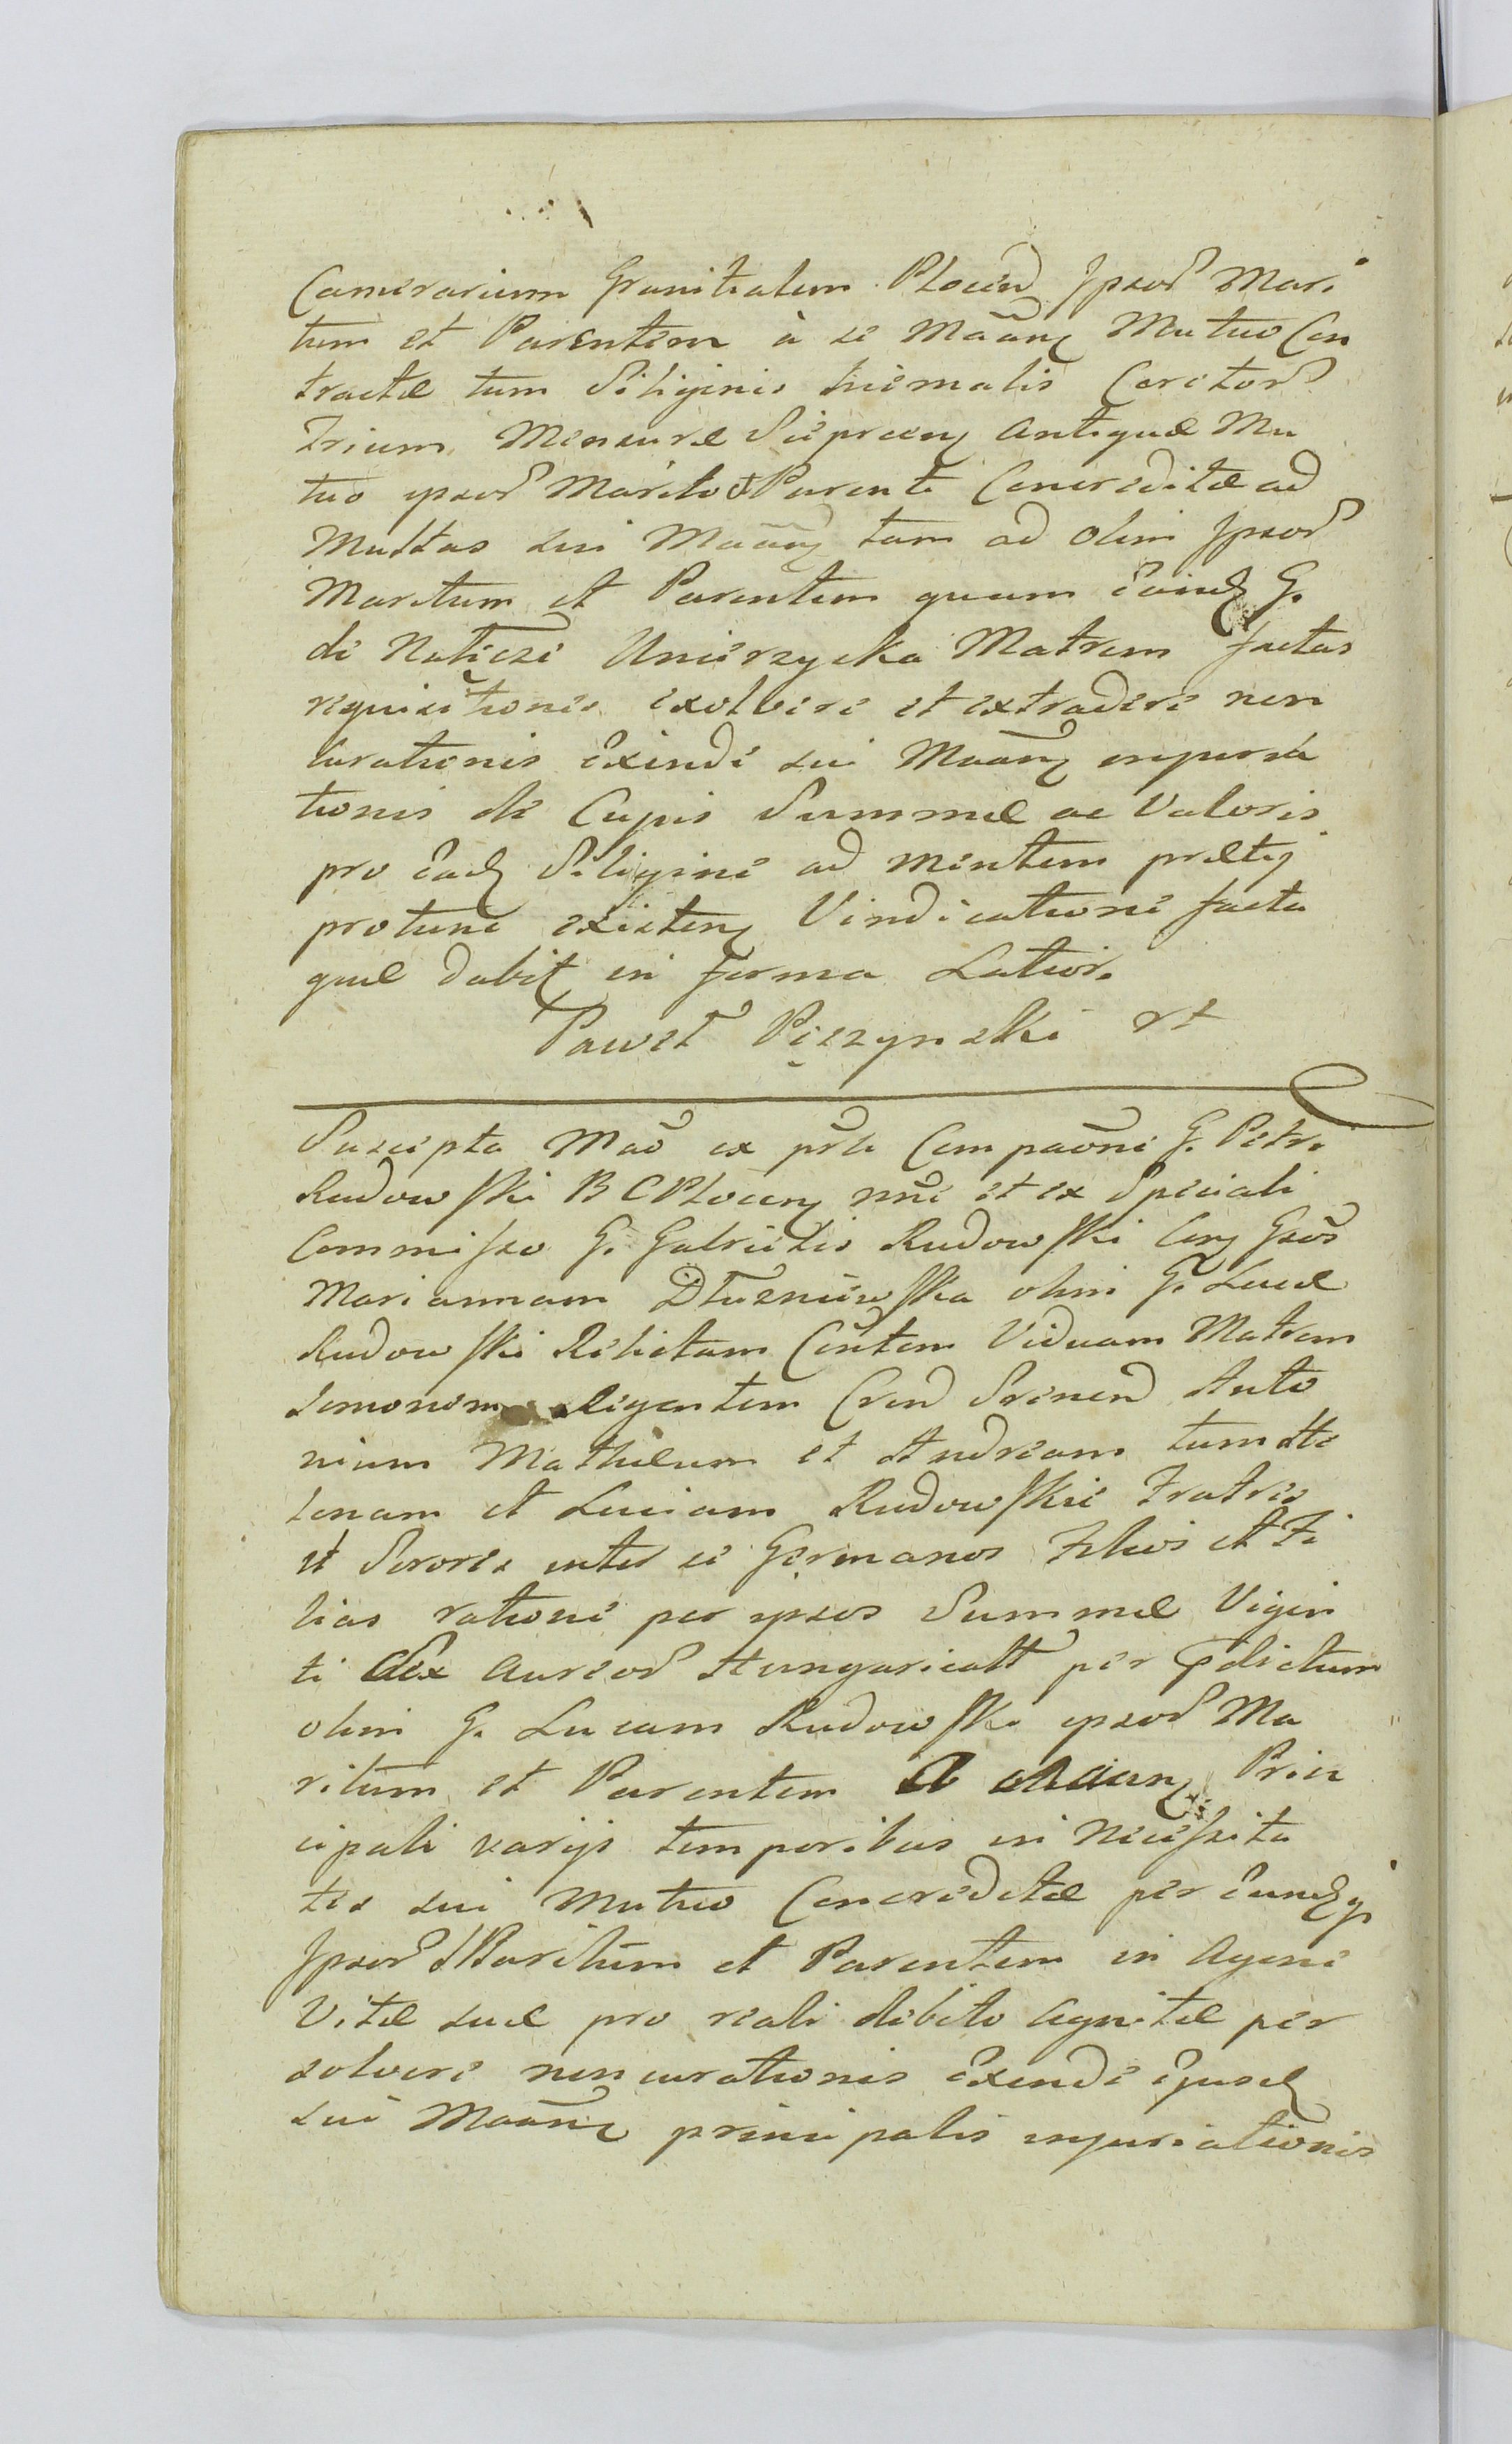 Camerarium Granitialem Plocen Ipsor Mari
tum et Parentem à se Maãnẽ Mutuo Con
tractæ tum Siliginis hiemalis Coretor
Trium Mensuræ Sieprcen antiquæ Mu
tuo ipsor Marito & Parenti Concreditæ ad
Multas sui Maãnẽ tam ad olim Ipsor
Maritum et Parentem quam eand G.
de Naticze Unierzyska Matrem factas
requisitiones exolvere et extradere non
curationis exinde sui Maãnẽ injuria
tionis de Cujus Summæ ac Valoris
pro ead Siligine ad mentem prætij
protunc existen Vindicatione facta
quæ dabit in forma Latior.
Paweł Pięczynski

Suscepta Maõ ex prli Compaõne G. Petri
Rudowski B C Plocen nne et ex Speciali
Commisso G. Gabrielis Rudowski Con Gsõs
Mariannam Dłuzniewska olim G. Lucæ
Rudowski Relictam Cõntem Viduam Matrem
semonem ligentem Cren Srenen Anto
nium Mathæum et Andream tum He
lenam et Luciam Rudowskie Fratres
et Sorores inter se Germanos Filios et Fi
lias ratione per ipsos Summæ Vigin
ti Sex Aureor Hungaricall per Pdictum
olim G. Lucam Rudowski ipsor Ma
ritum et Parentem A Maãnẽ Prin
cipali varijs temporibus in Necessita
tes sui Mutuo Concreditæ per eund q
Ipsor Maritum et Parentem in Agone
Vitæ suæ pro reali debito Agnitæ per
solvere non curationis exinde ejusd
sui Maãnẽ principalis injuriationis